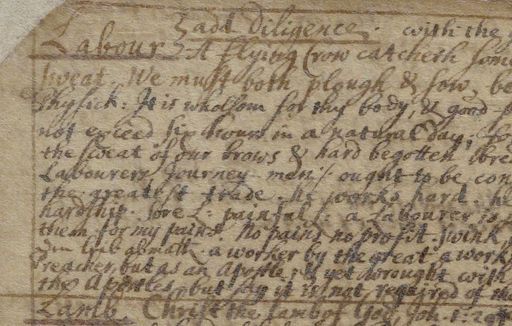 Labour } add diligence. with the
A flying Crow catcheth som
sweat. We must both plough & sow, be
Physick. It is wholsom for thy body, & good
not exceed six hours in a natural day;
the sweat of our brows & hard begotten bre
Labourers Journey-men ought to be con
the greatest trade. He works hard.
hardship. sore L: painful: a Labourer is
them for my pains. No pains no profit. swink,
a worker by the great a work
preacher, but as an Apostle, & yet wrought with
the Apostles, but say it is not required of
Lamb. Christ the lamb of God, Joh. 1. 29